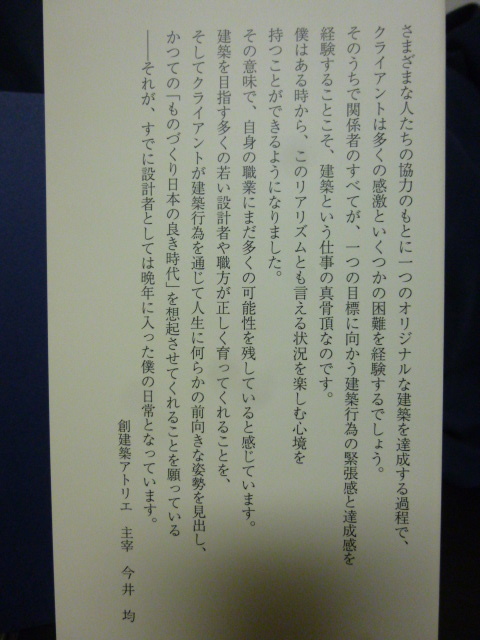 さまざまな人たちの協力のもとに一つのオリジナルな建築を達成する過程で、
クライアントは多くの感激といくつかの困難を経験するでしょう。
そのうちで関係者のすべてが、一つの目標に向かう建築行為の緊張感と達成感を
経験することこそ、建築という仕事の真骨頂なのです。
僕はある時から、このリアリズムとも言える状況を楽しむ心境を
持つことができるようになりました。
その意味で、自身の職業にまだ多くの可能性を残していると感じています。
建築を目指す多くの若い設計者や職方が正しく育ってくれることを、
そしてクライアントが建築行為を通じて人生に何らかの前向きな姿勢を見出し、
かつての「ものづくり日本の良き時代」を想起させてくれることを願っている
──それが、すでに設計者としては晩年に入った僕の日常となっています。
創建築アトリエ　主宰　今井　均